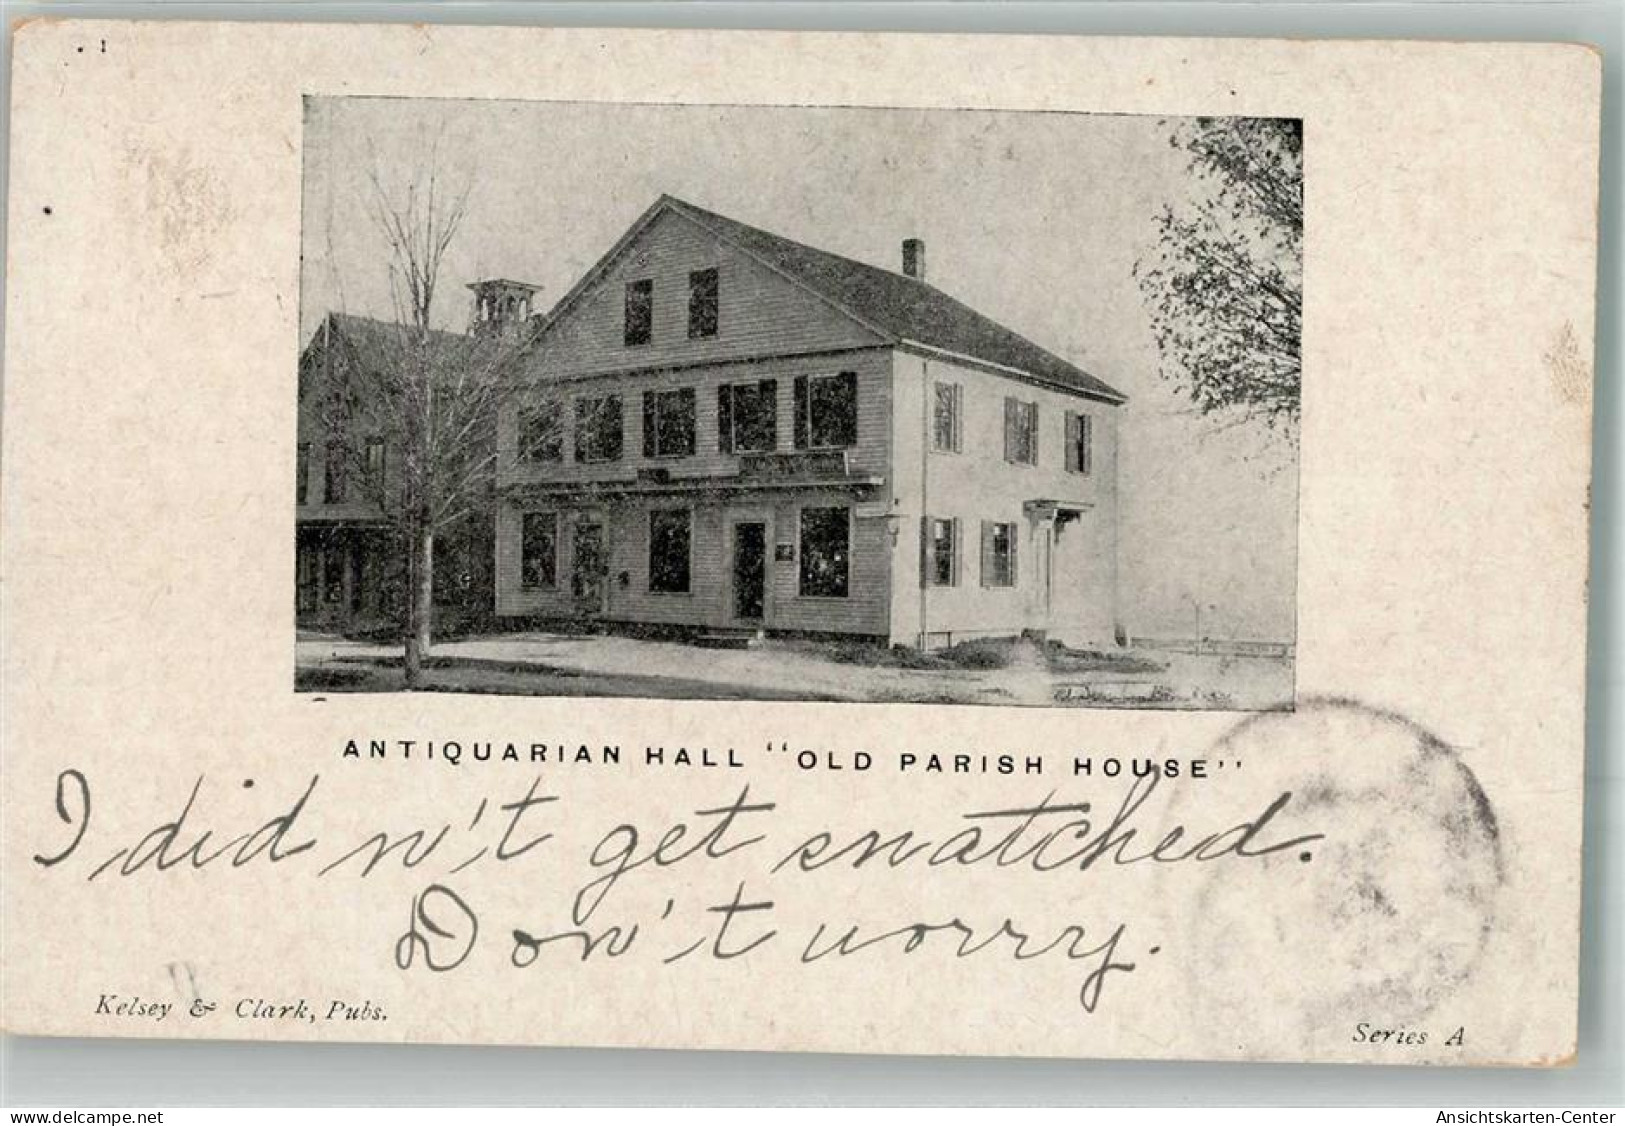 ANTIQUARIAN HALL "OLD PARISH HOUSE"
I didn't get snatched.
Don't worry.
Kelsey & Clark, Pubs.
Series A
www.delcampe.net
Ansichtskarten-Center